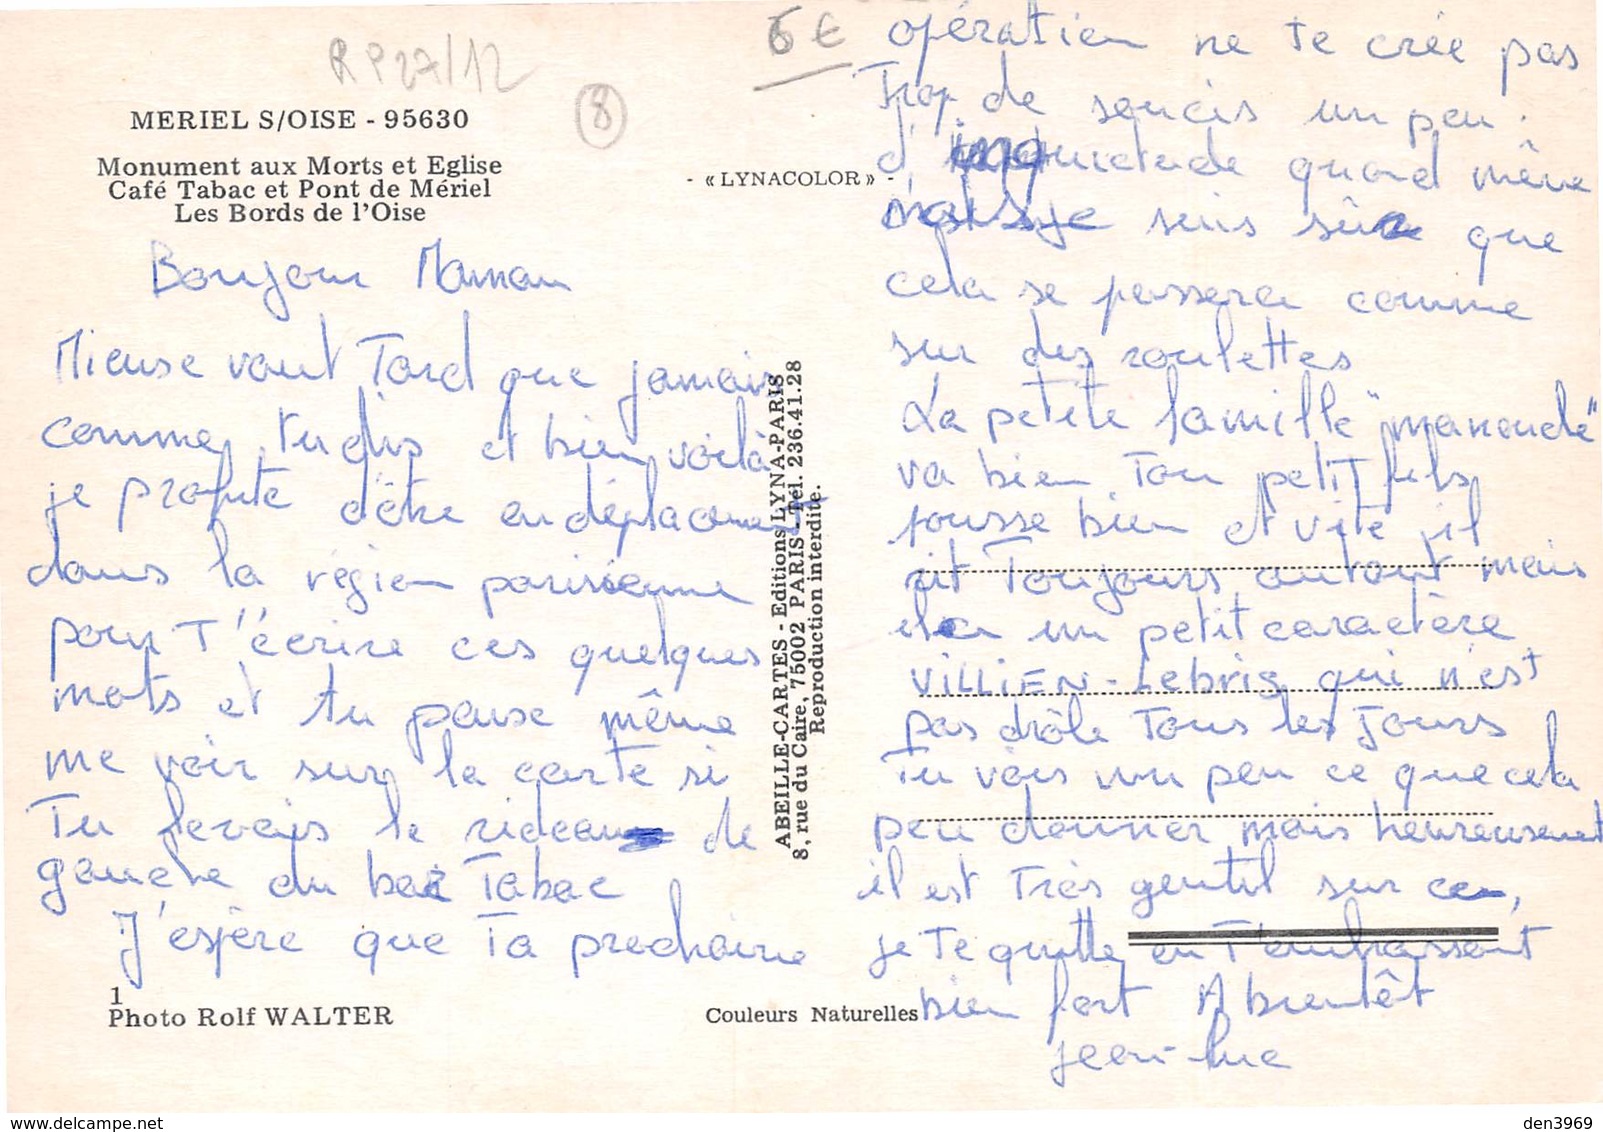 RP27/12
8
6 €
MERIEL S/OISE - 95630
Monument aux Morts et Eglise
Café Tabac et Pont de Mériel
Les Bords de l'Oise
- « LYNACOLOR » -
Bonjour Maman
Mieuse vaut Tard que jamais
comme tu dis et bien voilà
je profite d'être en déplacement
dans la région parisienne
pour T'écrire ces quelques
mots et tu peuse même
me voir sur la carte si
Tu levais le rideau de
gauche du bar Tabac
J'espère que Ta prochaine
opération ne te crée pas
Trop de soucis un peu
d'inquietude quand même
mais je suis sûr que
cela se passera comme
sur des roulettes
La petite famille "manoude"
va bien Ton petit fils
pousse bien et vite il
rit Toujours autant mais
il a un petit caractère
ViLLiEN - Lebris qui n'est
pas drôle Tous les Jours
Tu vois un peu ce que cela
peu donner mais heureusement
il est Très gentil sur ce,
je Te quitte en T'embrassant
bien fort A bientôt
jean-luc
ABEILLE-CARTES - Editions LYNA-PARIS
8, rue du Caire, 75002 PARIS - Tél. 236.41.28
Reproduction interdite.
1
Photo Rolf WALTER
Couleurs Naturelles
den3969